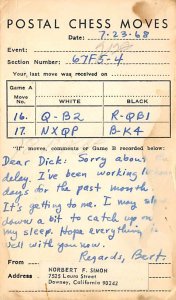 POSTAL CHESS MOVES
Date: 7-23-68
Event:
Section Number: 67F5-4
Your last move was received on
GAME A
Move No. WHITE BLACK
16. Q-B2 R-QB1
17. NXQP B-K4
"If" moves, comments or Game B recorded below:
Dear Dick: Sorry about
delay. I've been working
days for the past month.
It's getting to me. I may
slowed a bit to catch up on
my sleep. Hope everything is
well with you now.
Regards, Bert.
From
Address
NORBERT F. SIMON
7535 Louis Street
Downey, California 90242